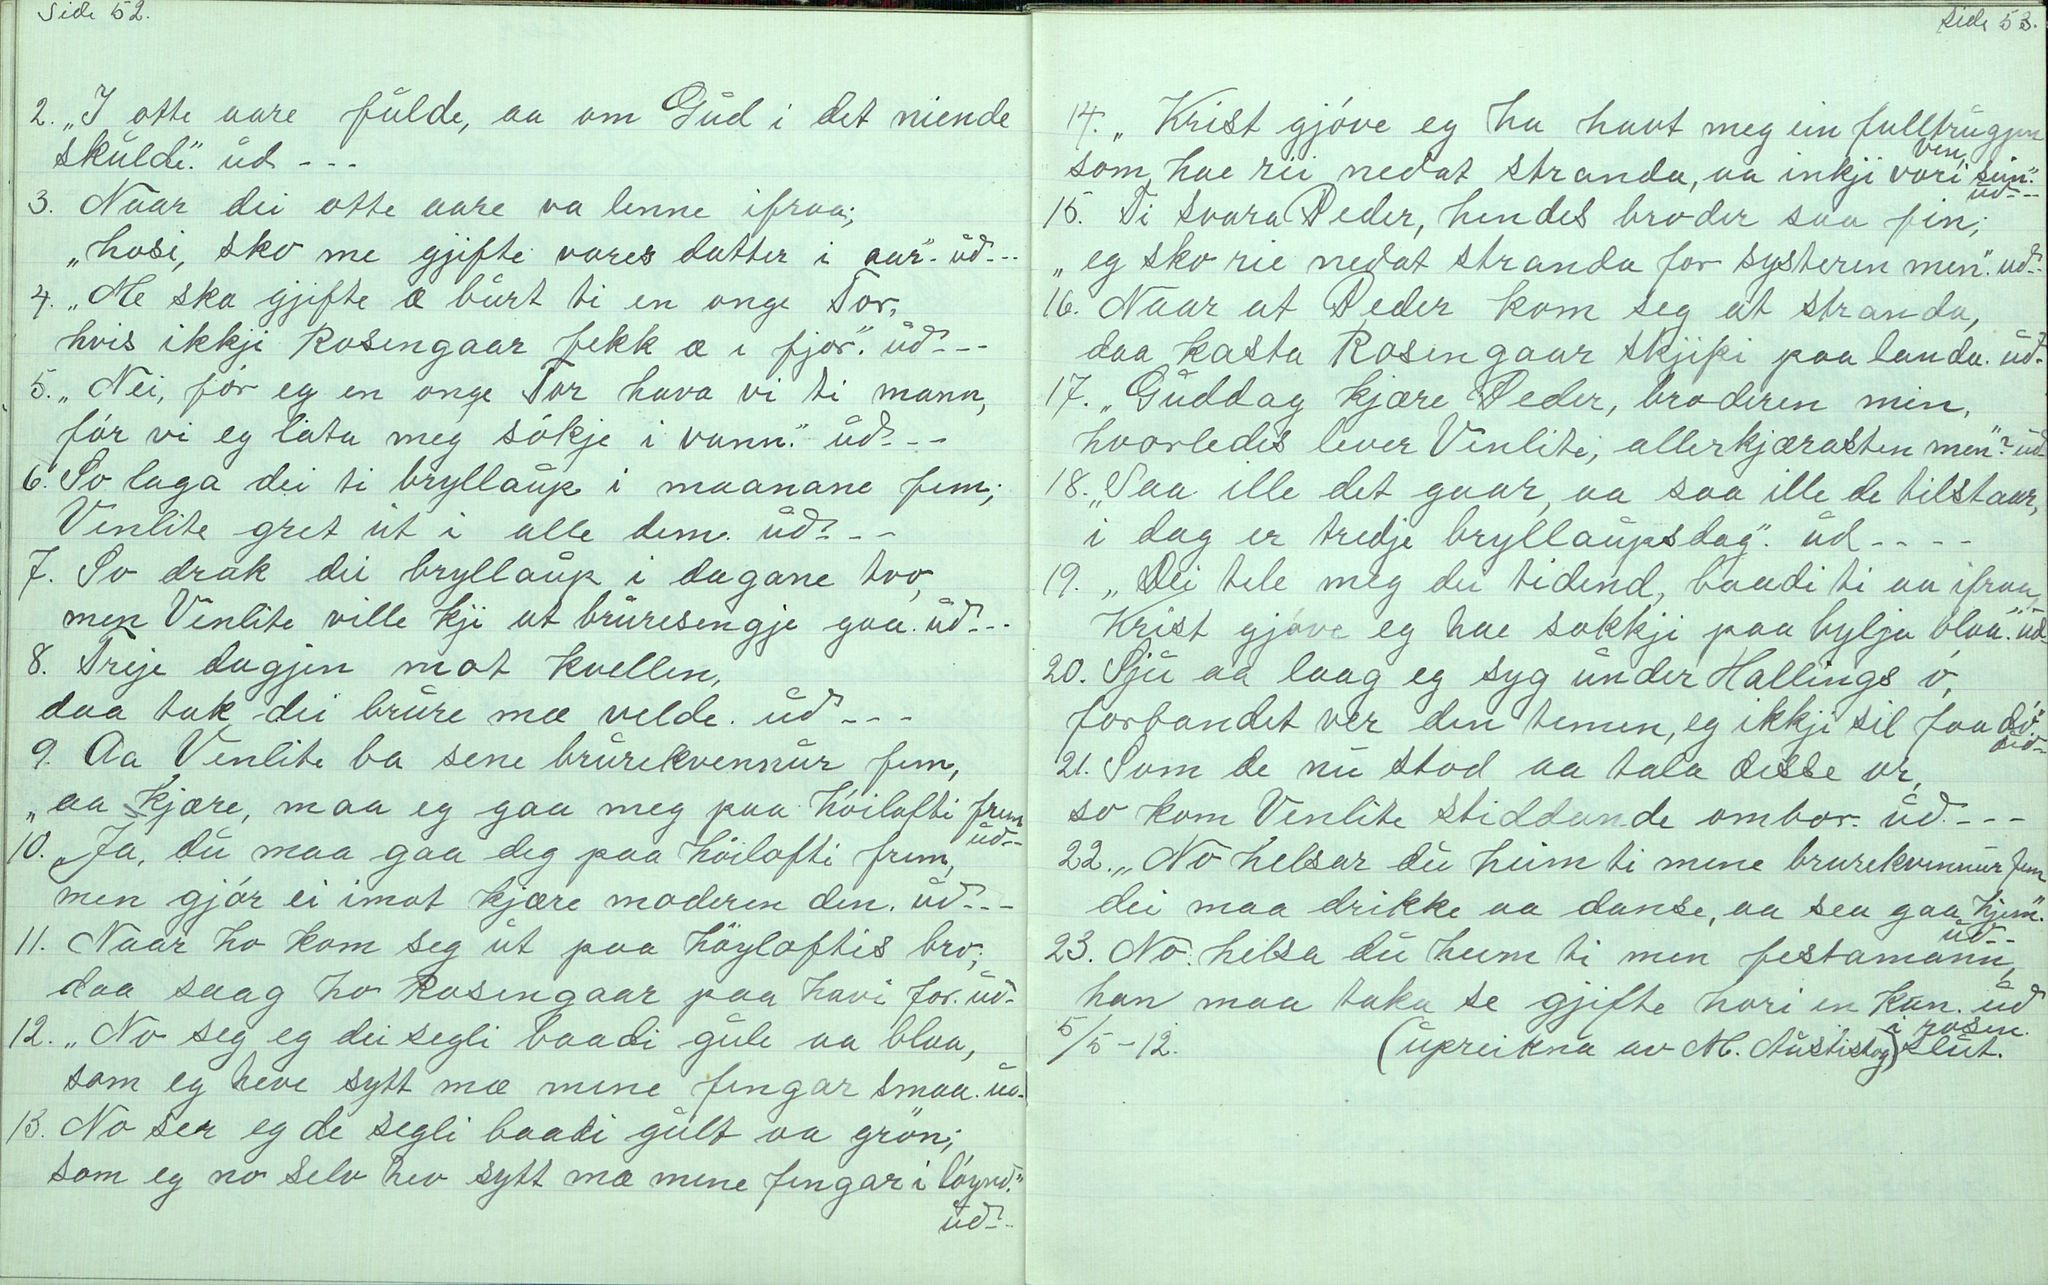 Side 52.
2. „I otte aare fulde, aa om Gud i det niende
skulde." ud - - -
3. Naar dei otte aare va lenne ifraa;
„hosi, sko me gjifte vores datter i aar" ud - - -
4. „Me ska gjifte æ burt ti en onge Tor,
hvis ikkji Rosengaar fekk æ i fjor". ud - - -
5. „Nei, før eg en onge Tor hava vi ti mann,
før vi eg lata meg søkje i vann." ud - - -
6. So laga dei ti bryllaup i maanane fem;
Venlite gret ut i alle dem. ud - - -
7. So drak dei bryllaup i dagane tvo,
men Venlite ville kji at bruresengje gaa. ud - - -
8. Treje dagjen mot kvellen,
daa tok dei brure mæ velde. ud - - -
9. Aa Venlite ba sene brurekvennur fem,
„aa kjære, maa eg gaa meg paa höilofti frem
ud - -
10. „Ja, du maa gaa deg paa höilofti frem,
men gjør ei imot kjære moderen den. ud - - -
11. Naar ho kom seg ut paa höyloftis bro;
daa saag ho Rosengaar paa havi for. ud -
12. „No seg eg dei segli baadi gule aa blaa,
som eg heve sytt mæ mine fingar smaa. ud -
13. No ser eg de segli baadi gult aa grön;
som eg no selv hev sytt mæ mine fingar i løynd."
ud - -
Side 53.
14. „Krist gjøve eg ha havt meg ein fulltrugjen
ven,
som hae rii nedat stranda, aa inkji vori sein."
ud - -
15. Ti svara Peder, hendes broder saa fin;
„eg sko rie nedat stranda for systeren men". ud - -
16. Naar at Peder kom seg at stranda,
daa kasta Rosengaar skjipi paa landa. ud -
17. „Guddag kjære Peder, broderen min,
hvorledes lever Venlite, allerkjærasten men"? ud -
18. „Saa ille det gaar, aa saa ille de tilstaar,
i dag er tredje bryllaupsdag". ud - - - -
19. „Dei tele meg dei tidend, baadi ti aa ifraa,
Krist gjøve eg hae sokkji paa bylja blaa." ud -
20. Sju aa laag eg syg under Hallings ø,
forbandet ver den temen, eg ikkje sil faa dø."
ud -
21. Som de nu stod aa tala disse or,
so kom Venlite stiddande ombor. ud - - -
22. „No helsar du heim ti mine brurekvennur fem
dei maa drikke aa danse, aa sea gaa hjem".
ud - -
23. No helsa du heim ti men festamann,
han maa taka se gjifte hori en kan. ud
i rosen.
5/5 - 12. (upreikna av M. Austistog) Slut.